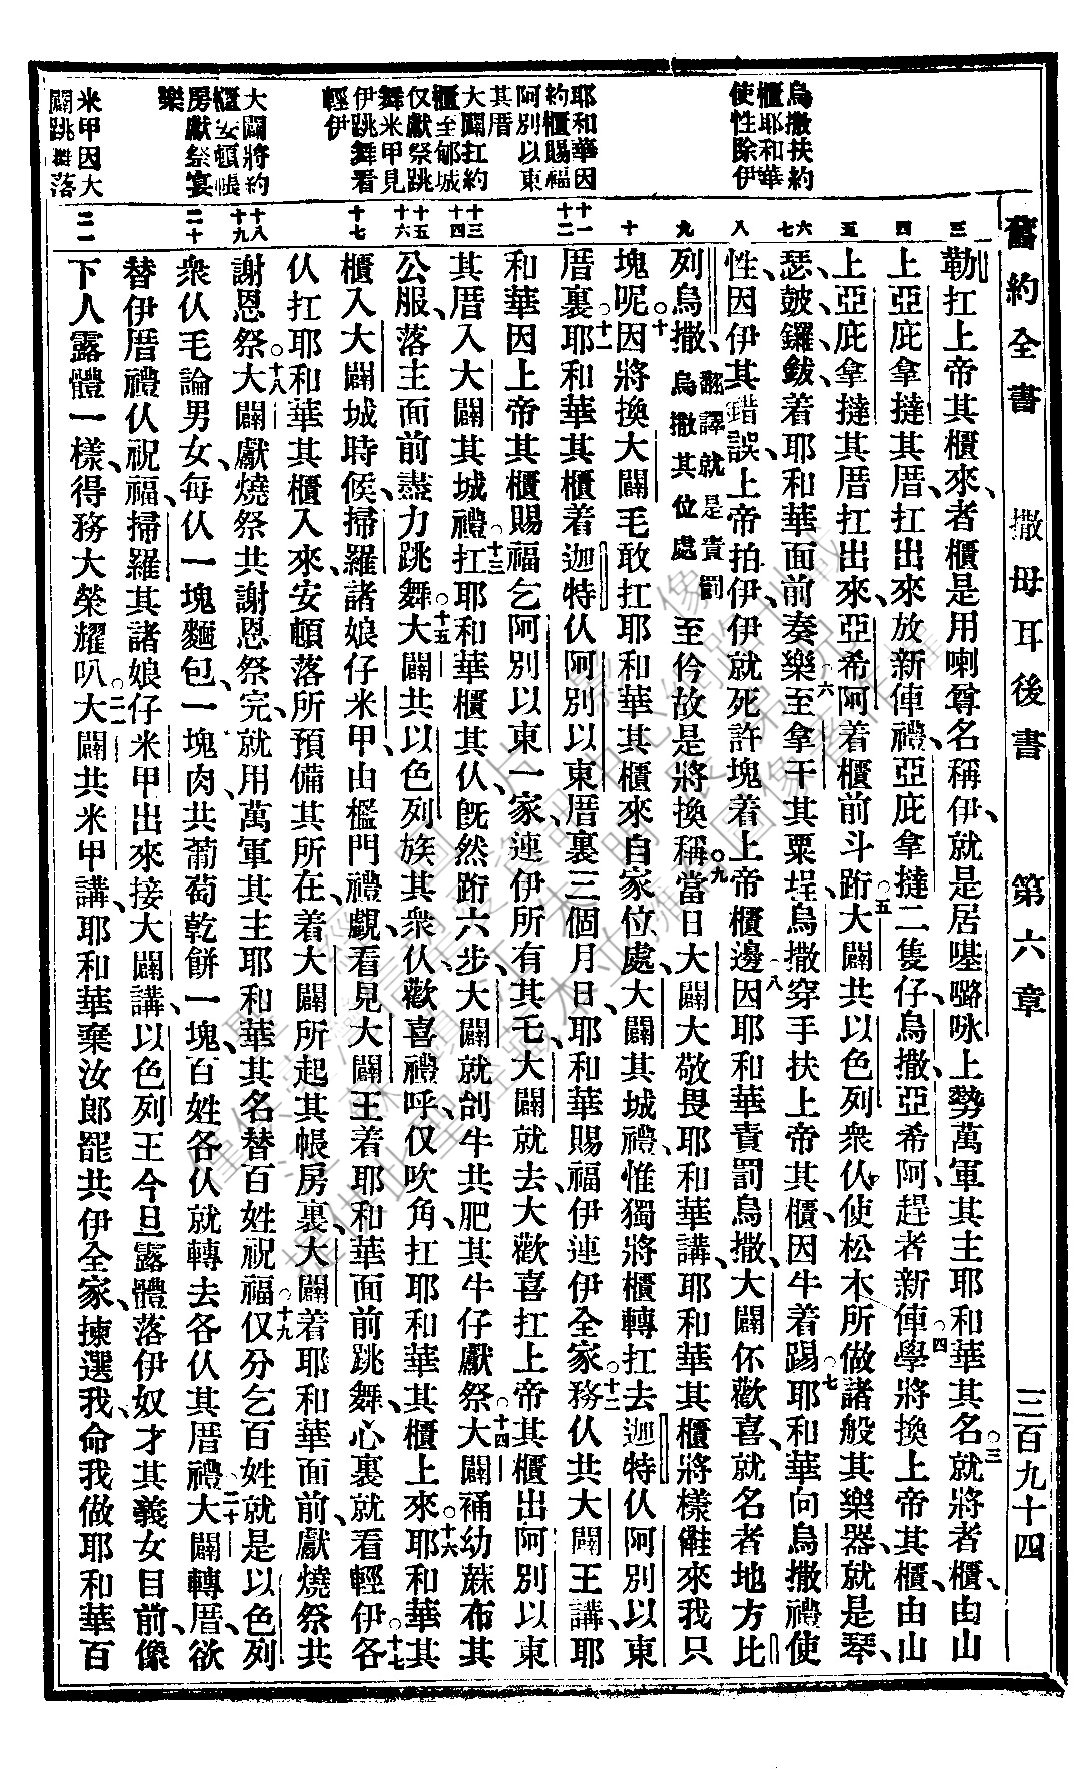 舊約全書 撒母耳後書 第六章 三百九十四
烏撒扶約
櫃耶和華
使性除伊
耶和華因
約櫃賜福
阿別以東
其厝
大闢扛約
櫃至郇城
仅獻祭跳
舞米甲見
伊跳舞看
輕伊
大闢將約
櫃安頓帳
房獻祭宴
樂
米甲因大
闢跳舞落
三 四 五 六 七 八 九 十 十一 十二 十三 十四 十五 十六 十七 十八 十九 二十 二一
勒扛上帝其櫃來、者櫃是用喇尊名稱伊、就是居𡋾㗬咏上勢萬軍其主耶和華其名。三就將者櫃、由山
上亞庇拿撻其厝、扛出來、放新俥禮、亞庇拿撻二隻仔、烏撒、亞希阿、趕者新俥。四學將換上帝其櫃、由山
上亞庇拿撻其厝扛出來、亞希阿着櫃前斗跡。五大闢共以色列衆仈、使松木所做諸般其樂器、就是琴、
瑟、皷、鑼、鈸、着耶和華面前奏樂。六至拿干其粟埕、烏撒穿手扶上帝其櫃、因牛着踢。七耶和華向烏撒禮使
性、因伊其錯誤、上帝拍伊、伊就死許塊着上帝櫃邊。八因耶和華責罰烏撒、大闢伓歡喜、就名者地方比
列烏撒、翻譯就是責罰烏撒其位處至仱故是將換稱。九當日大闢大敬畏耶和華講、耶和華其櫃將樣𠆧來我只
塊呢。十因將換大闢毛敢扛耶和華其櫃來自家位處、大闢其城禮、惟獨將櫃轉扛去迦特仈阿別以東
厝裏。十一耶和華其櫃着迦特仈阿別以東厝裏三個月日、耶和華賜福伊連伊全家。十二務仈共大闢王講、耶
和華因上帝其櫃賜福乞阿別以東一家、連伊所有其乇、大闢就去大歡喜扛上帝其櫃出阿別以東
其厝、入大闢其城禮。十三扛耶和華櫃其仈、旣然跡六步、大闢就刣牛共肥其牛仔獻祭。十四大闢補幼蔴布其
公服、落主面前盡力跳舞。十五大闢共以色列族其衆仈、歡喜禮呼、仅吹角、扛耶和華其櫃上來。十六耶和華其
櫃入大闢城時候、掃羅諸娘仔米甲、由檻門禮覷、看見大闢王着耶和華面前跳舞、心裏就看輕伊。十七各
仈扛耶和華其櫃入來、安頓落所預備其所在、着大闢所起其帳房裏、大闢着耶和華面前、獻燒祭共
謝恩祭。十八大闢獻燒祭共謝恩祭完、就用萬軍其主耶和華其名、替百姓祝福。十九仅分乞百姓就是以色列
衆仈、毛論男女、每仈一塊麵包、一塊肉、共葡萄乾餅一塊、百姓各仈就轉去各仈其厝禮。二十大闢轉厝、欲
替伊厝禮仈祝福、掃羅其諸娘仔米甲出來接大闢講、以色列王今旦露體落伊奴才其義女目前、像
下人露體一樣、得務大榮耀叭。二一大闢共米甲講、耶和華棄汝郎罷共伊全家、揀選我、命我做耶和華百